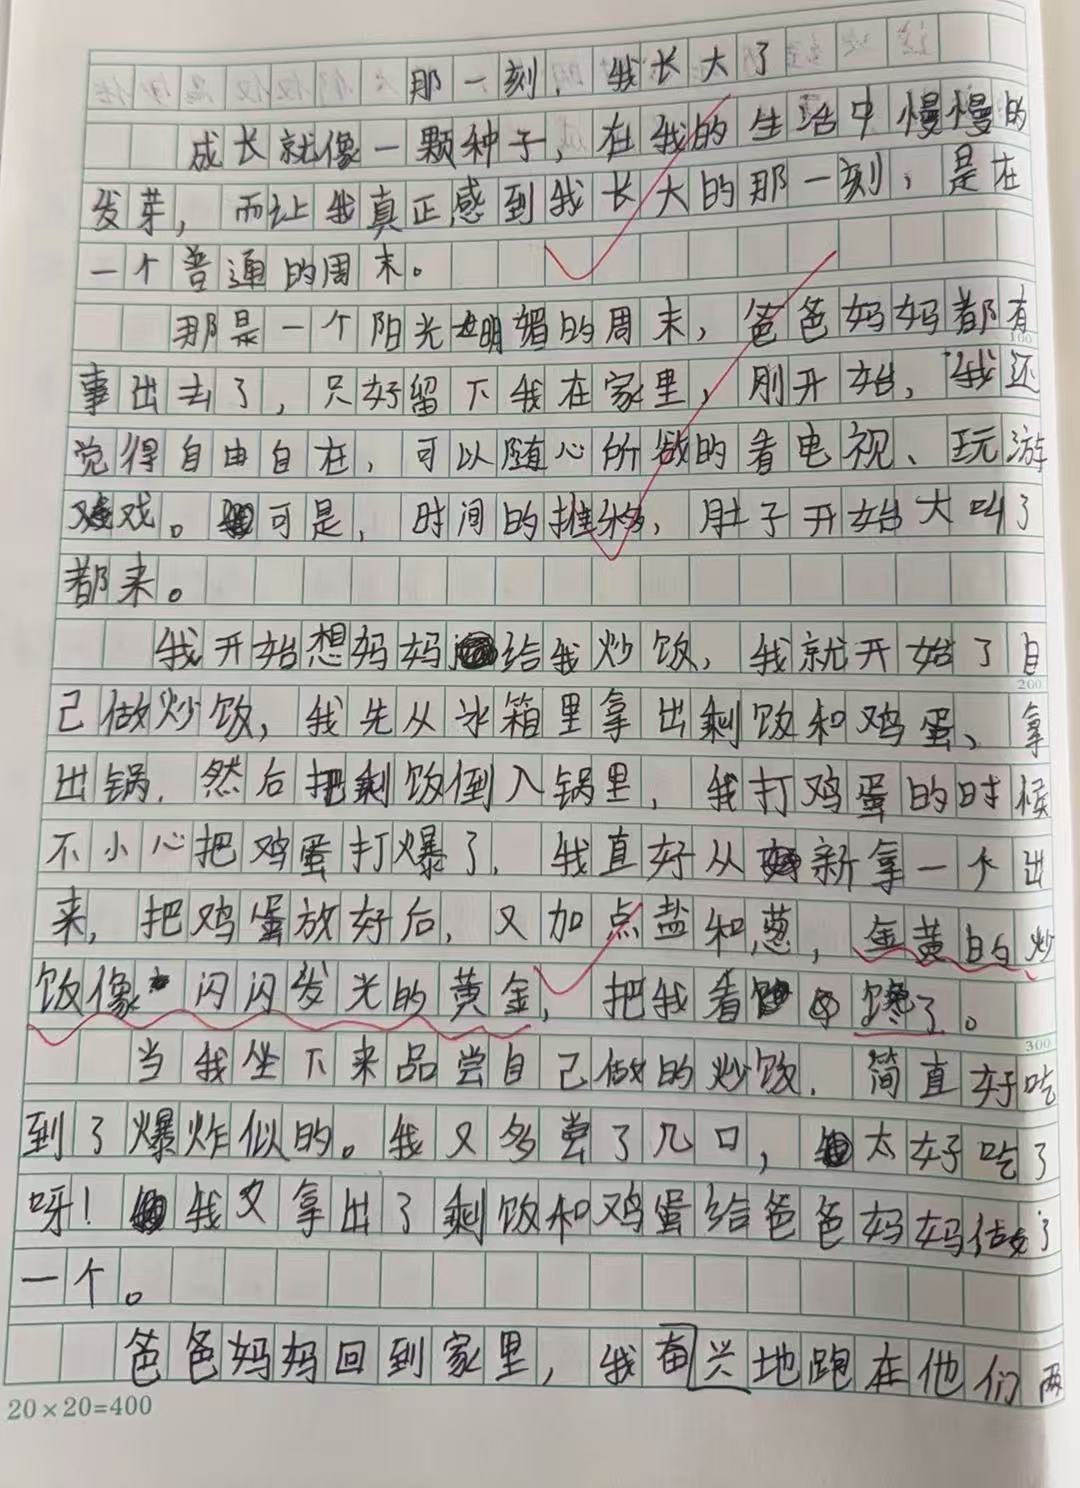 那一刻,我长大了
成长就像一颗种子,在我的生活中慢慢的
发芽,而让我真正感到我长大的那一刻,是在
一个普通的周末。
那是一个阳光明媚的周末,爸爸妈妈都有
100
事出去了,只好留下我在家里,刚开始,我还
觉得自由自在,可以随心所欲的看电视、玩游
戏。可是,时间的推移,肚子开始大叫了
都来。
我开始想妈妈给我炒饭,我就开始了自
200
己做炒饭,我先从冰箱里拿出剩饭和鸡蛋、拿
出锅,然后把剩饭倒入锅里,我打鸡蛋的时候
不小心把鸡蛋打爆了,我直好从新拿一个出
来,把鸡蛋放好后,又加点盐和葱,金黄的炒
饭像闪闪发光的黄金,把我看馋了。
300
当我坐下来品尝自己做的炒饭,简直好吃
到了爆炸似的。我又多尝了几口,太好吃了
呀!我又拿出了剩饭和鸡蛋给爸爸妈妈做了
一个。
爸爸妈妈回到家里,我奋兴地跑在他们两
20×20=400